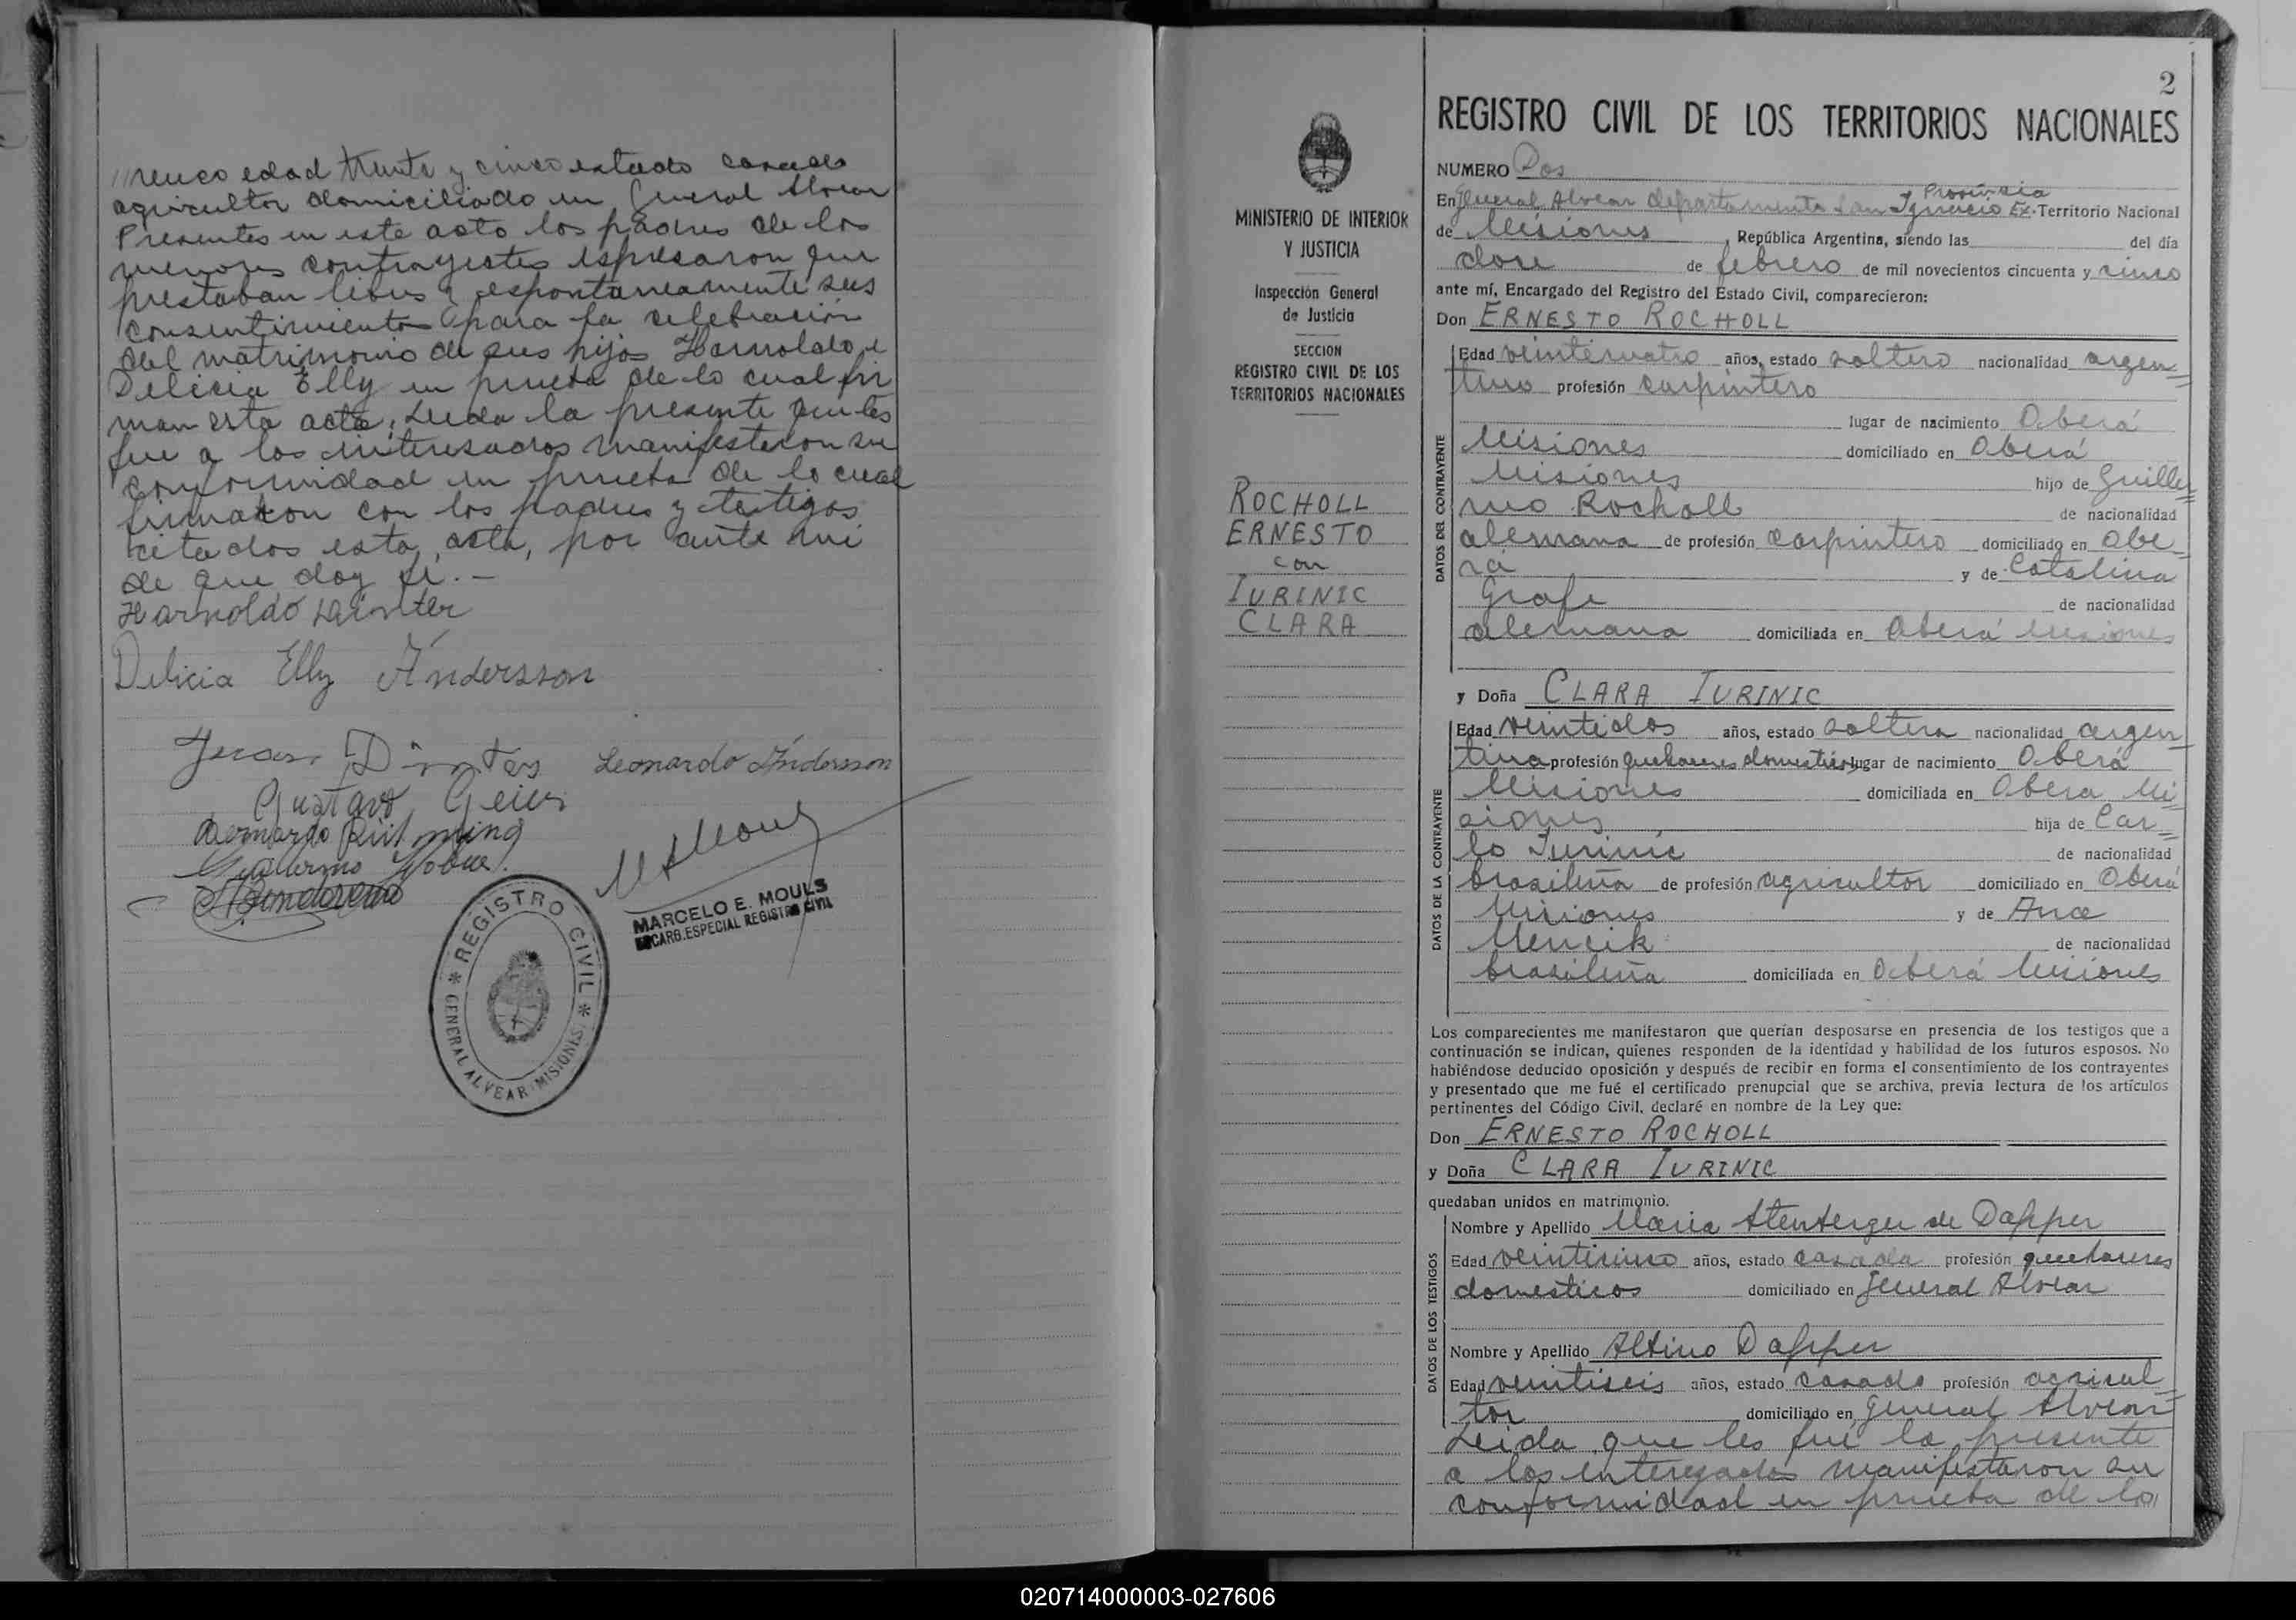 edad treinta y cinco estado casado
agricultor domiciliado en General Alvear
Presentes en este acto los padres de los
menores contrayentes expresaron que
prestaban libre y espontaneamente sus
consentimientos para la celebración
del matrimonio de sus hijos Harnoldo e
Delicia Elly en prueba de lo cual fir
man esta acta. Leida la presente que les
fue a los interesados manifestaron su
conformidad en prueba de lo cual
firmaron con los padres y testigos
citados esta acta, por ante mi
de que doy fé.-
Harnoldo
Delicia Elly Andersson
Juan Leonardo Andersson
Gustavo
Bernardo
Guillermo
MARCELO E. MOULS
ENCARG. ESPECIAL REGISTRO CIVIL
* REGISTRO CIVIL *
GENERAL ALVEAR (MISIONES)
MINISTERIO DE INTERIOR
Y JUSTICIA
Inspección General
de Justicia
SECCION
REGISTRO CIVIL DE LOS
TERRITORIOS NACIONALES
ROCHOLL
ERNESTO
con
IURINIC
CLARA
2
REGISTRO CIVIL DE LOS TERRITORIOS NACIONALES
NUMERO Dos
Provincia
En General Alvear departamento San Ignacio Ex-Territorio Nacional
de Misiones, República Argentina, siendo las del día
doce de febrero de mil novecientos cincuenta y cinco
ante mí, Encargado del Registro del Estado Civil, comparecieron:
Don ERNESTO ROCHOLL
DATOS DEL CONTRAYENTE
Edad veinticuatro años, estado soltero nacionalidad argen
tino profesión carpintero
lugar de nacimiento Oberá
Misiones domiciliado en Oberá
Misiones hijo de Guiller
mo Rocholl de nacionalidad
alemana de profesión carpintero domiciliado en Obe
rá y de Catalina
Grafe de nacionalidad
alemana domiciliada en Oberá Misiones
y Doña CLARA IURINIC
DATOS DE LA CONTRAYENTE
Edad veintidos años, estado soltera nacionalidad argen
tina profesión quehaceres domesticos lugar de nacimiento Oberá
Misiones domiciliada en Oberá Mi
siones hija de Car
lo Iurinic de nacionalidad
brasileña de profesión agricultor domiciliado en Oberá
Misiones y de Ana
Mencik de nacionalidad
brasileña domiciliada en Oberá Misiones
Los comparecientes me manifestaron que querían desposarse en presencia de los testigos que a
continuación se indican, quienes responden de la identidad y habilidad de los futuros esposos. No
habiéndose deducido oposición y después de recibir en forma el consentimiento de los contrayentes
y presentado que me fué el certificado prenupcial que se archiva, previa lectura de los artículos
pertinentes del Código Civil, declaré en nombre de la Ley que:
Don ERNESTO ROCHOLL
y Doña CLARA IURINIC
quedaban unidos en matrimonio.
DATOS DE LOS TESTIGOS
Nombre y Apellido Maria Stenberger de Dapper
Edad veinticinco años, estado casada profesión quehaceres
domesticos domiciliado en General Alvear
Nombre y Apellido Albino Dapper
Edad veintiseis años, estado casado profesión agricul
tor domiciliado en General Alvear
Leida que les fué la presente
a los interesados manifestaron su
conformidad en prueba de lo
020714000003-027606